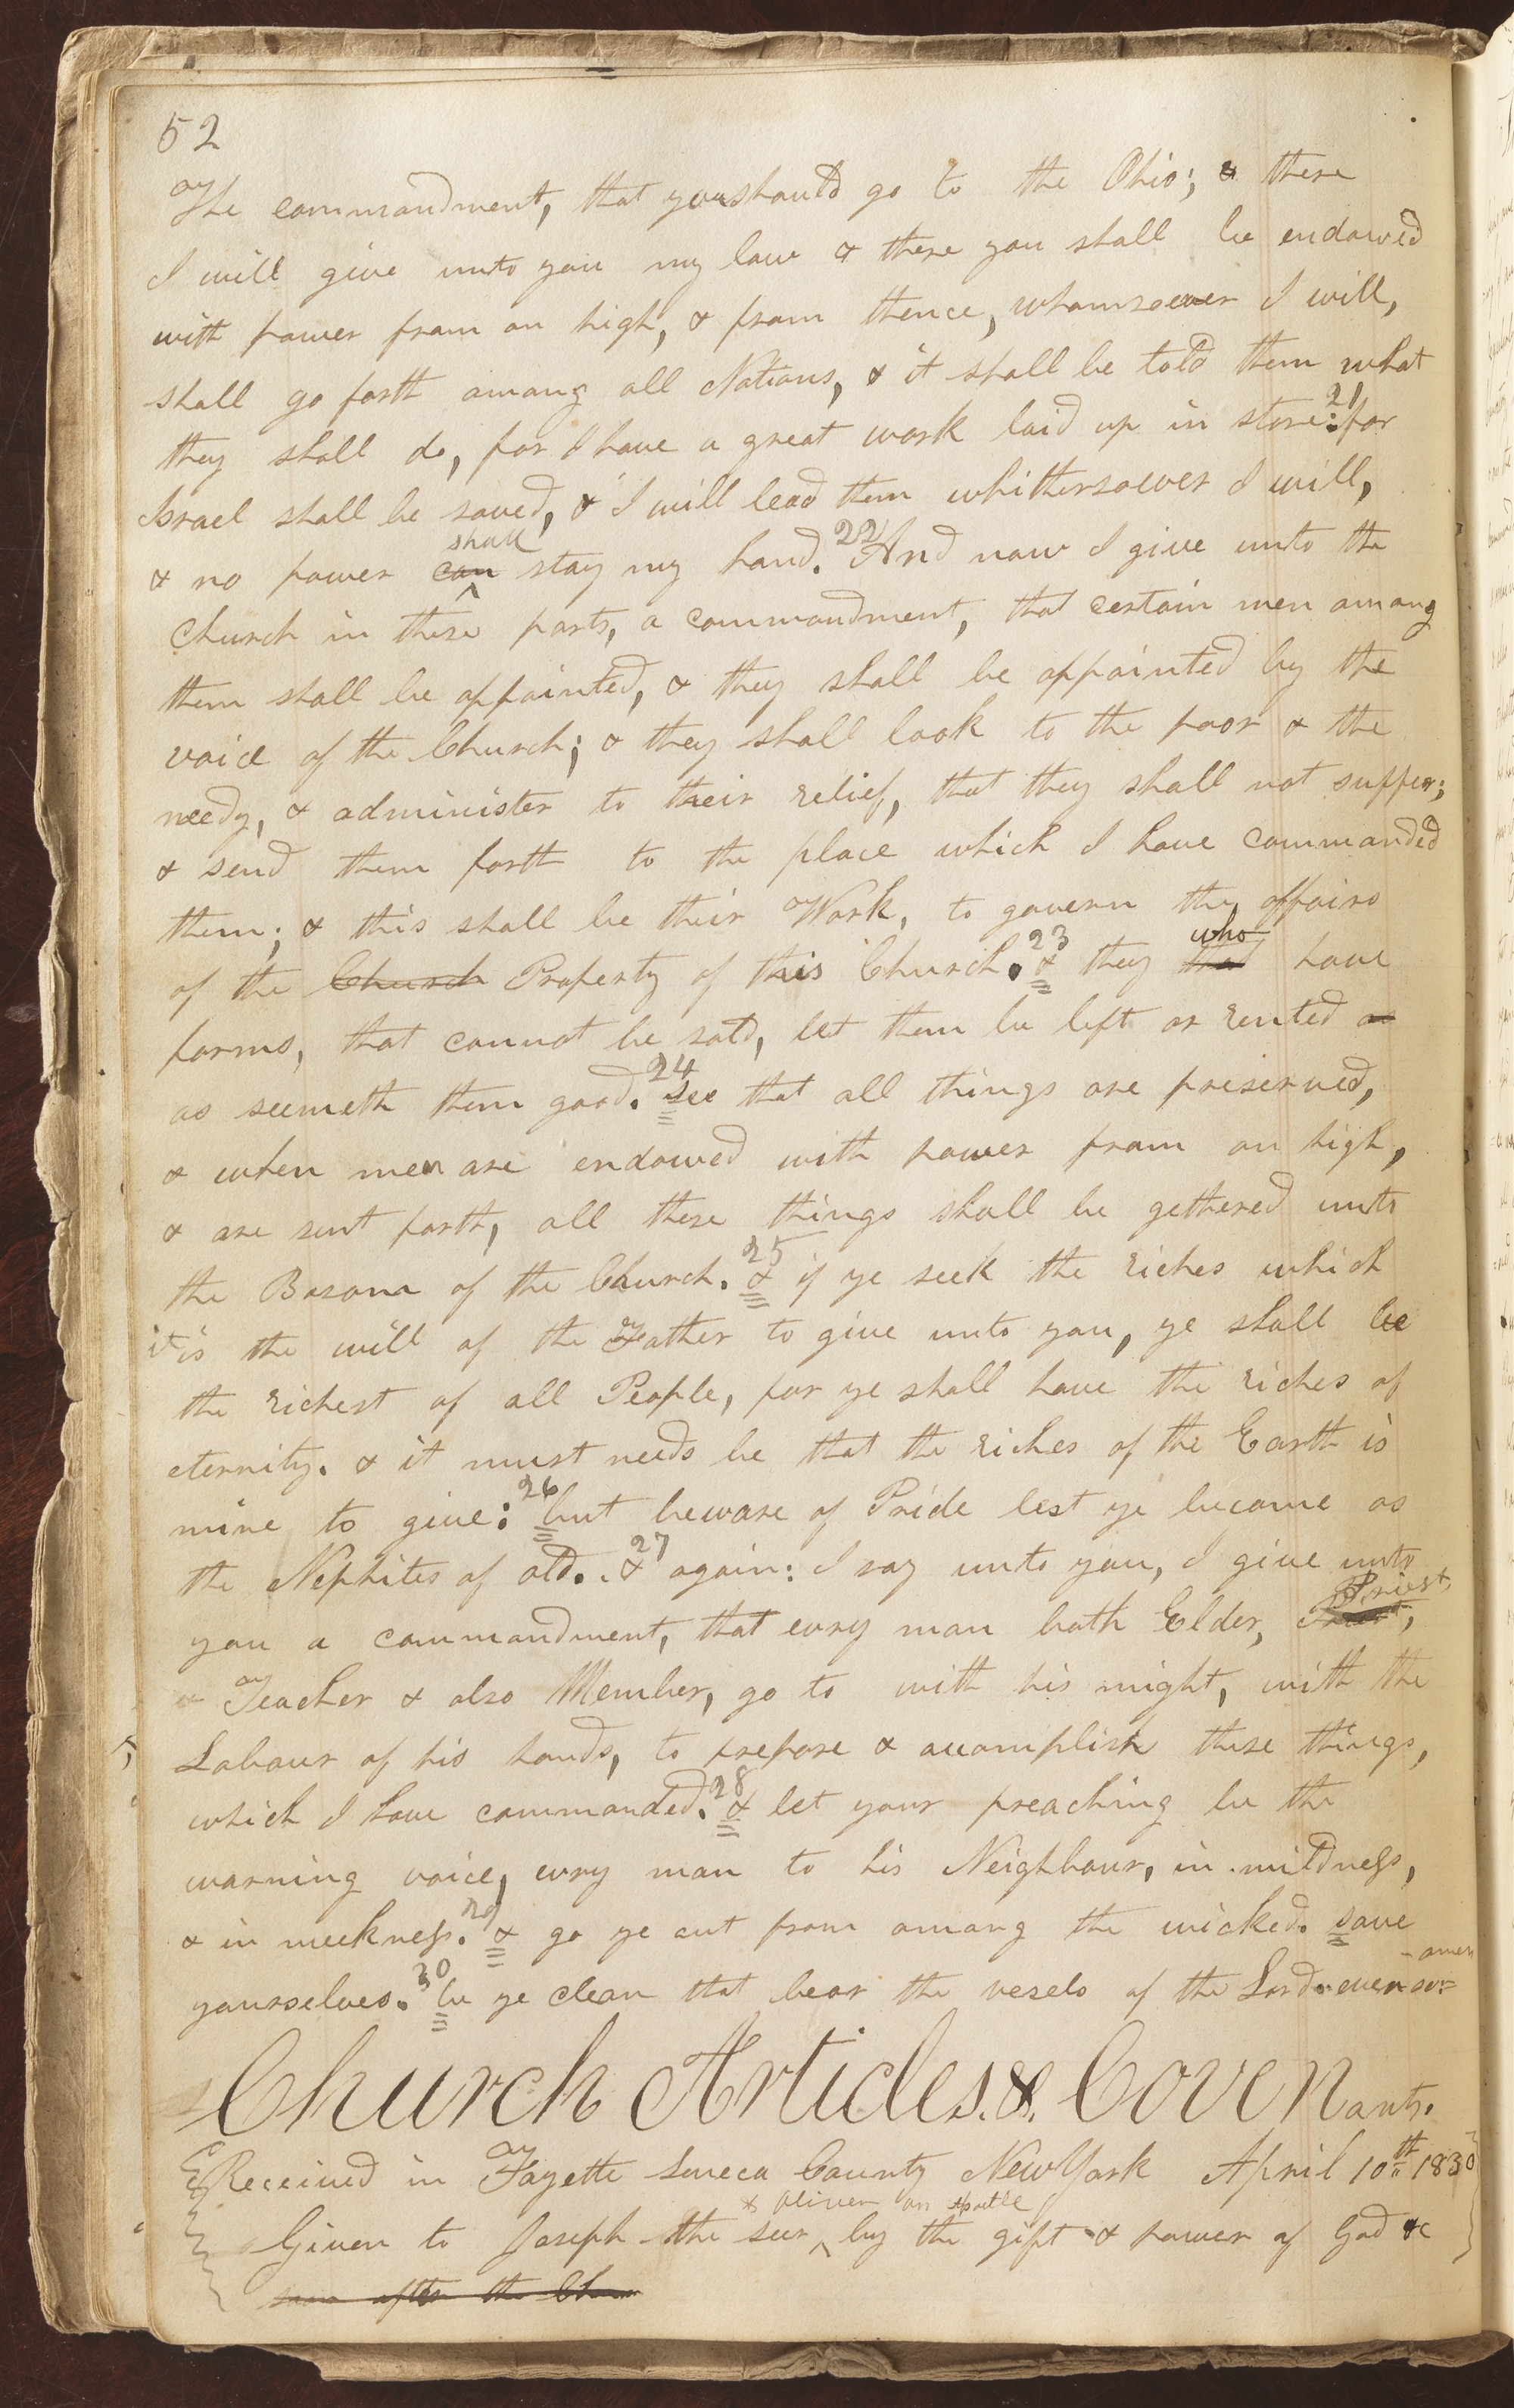 52
The commandment, that you should go to the Ohio; & there
I will give unto you my law & there you shall be endowed
with power from on high, & from thence, whomsoever I will,
shall go forth among all Nations, & it shall be told them what
they shall do, for I have a great work laid up in store: 21 for
Israel shall be saved, & I will lead them whithersoever I will,
shall
& no power can stay my hand. 22 And now I give unto the
Church in these parts, a commandment, that certain men among
them shall be appointed, & they shall be appointed by the
voice of the Church; & they shall look to the poor & the
needy, & administer to their relief, that they shall not suffer;
& send them forth to the place which I have commanded
them; & this shall be their Work, to govern the affairs
who
of the Church Property of this Church. 23 & they that have
farms, that cannot be sold, let them be left or rented or
as seemeth them good. 24 see that all things are preserved,
& when men are endowed with power from on high,
& are sent forth, all these things shall be gethered unto
the Bosom of the Church. 25 & if ye seek the riches which
it is the will of the Father to give unto you, ye shall be
the richest of all People, for ye shall have the riches of
eternity. & it must needs be that the riches of the Earth is
mine to give: 26 but beware of Pride lest ye become as
the Nephites of old. 27 & again: I say unto you, I give unto
Priest,
you a commandment, that evry man both Elder, Priest,
& Teacher & also Member, go to with his might, with the
Labour of his hands, to prepare & accomplish these things,
which I have commanded. 28 & let your preaching be the
warning voice, evry man to his Neighbour, in mildness,
& in meekness. 29 & go ye out from among the wicked. save
amen
yourselves. 30 be ye clean that bear the vesels of the Lord even so=
Church Articles. &. Covenants.
Received in Fayette Seneca County New York April 10th 1830
& Oliver an Apostle
Given to Joseph the seer by the gift & power of God &c
soon after the Chu